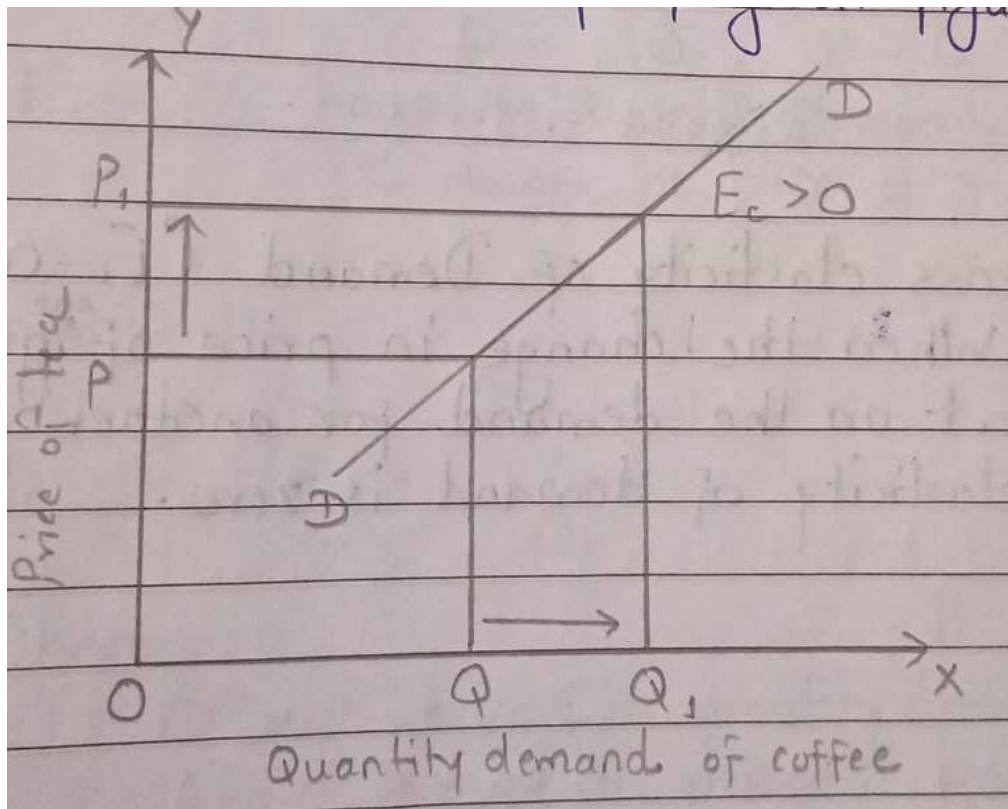 Y
D
P₁
E꜀ >0
Price of tea
P
D
O
Q
Q₁
X
Quantity demand of coffee